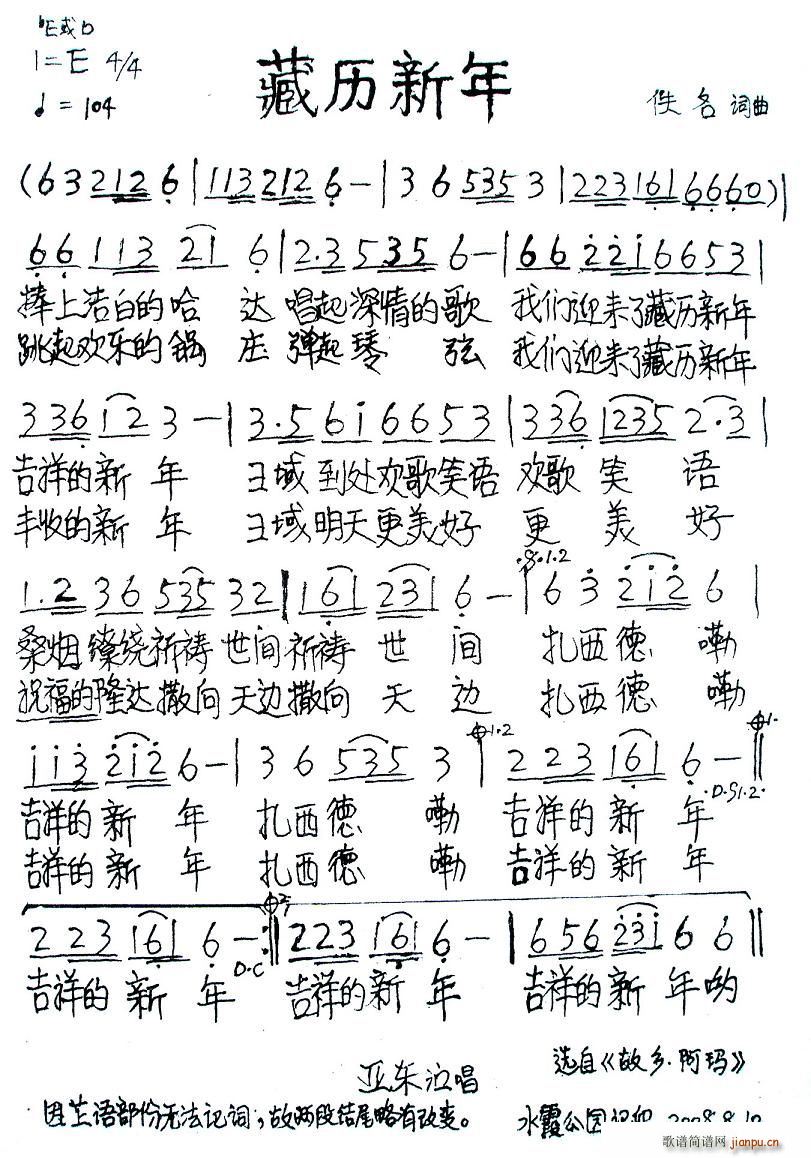 ♭E或D
1=E 4/4
♩=104
藏历新年
佚名 词曲
(6 3 2 1 2 6 | 1 1 3 2 1 2 6 - | 3 6 5 3 5 3 | 2 2 3 1 6 1 6 6 6 0)|
6 6 1 1 3 2 1 6 | 2·3 5 3 5 6 - | 6 6 2 2 1 6 6 5 3 |
捧上洁白的哈 达 唱起深情的歌 我们迎来了藏历新年
跳起欢乐的锅 庄 弹起琴 弦 我们迎来了藏历新年
3 3 6 1 2 3 - | 3·5 6 1 6 6 5 3 | 3 3 6 1 2 3 5 2·3 |
吉祥的新 年 王域到处欢歌笑语 欢歌 笑 语
丰收的新 年 王域明天更美好 更 美 好
1·2 3 6 5 3 5 3 2 | 1 6 1 2 3 1 6 - | 6 3 2 1 2 6 |
桑烟缭绕祈祷世间祈祷 世 间 扎西德 嘞
祝福的隆达撒向天边撒向 天 边 扎西德 嘞
1 1 3 2 1 2 6 - | 3 6 5 3 5 3 | 2 2 3 1 6 1 6 - ||
D.S1.2
吉祥的新 年 扎西德 嘞 吉祥的新 年
吉祥的新 年 扎西德 嘞 吉祥的新 年
2 2 3 1 6 1 6 - :|| 2 2 3 1 6 1 6 - | 6 5 6 2 3 1 6 6 ||
D.C
吉祥的新 年 吉祥的新 年 吉祥的新 年哟
亚东演唱
选自《故乡·阿玛》
因芒语部份无法记词,故两段结尾略有改变。
水霞公园
歌谱简谱网
jianpu.cn